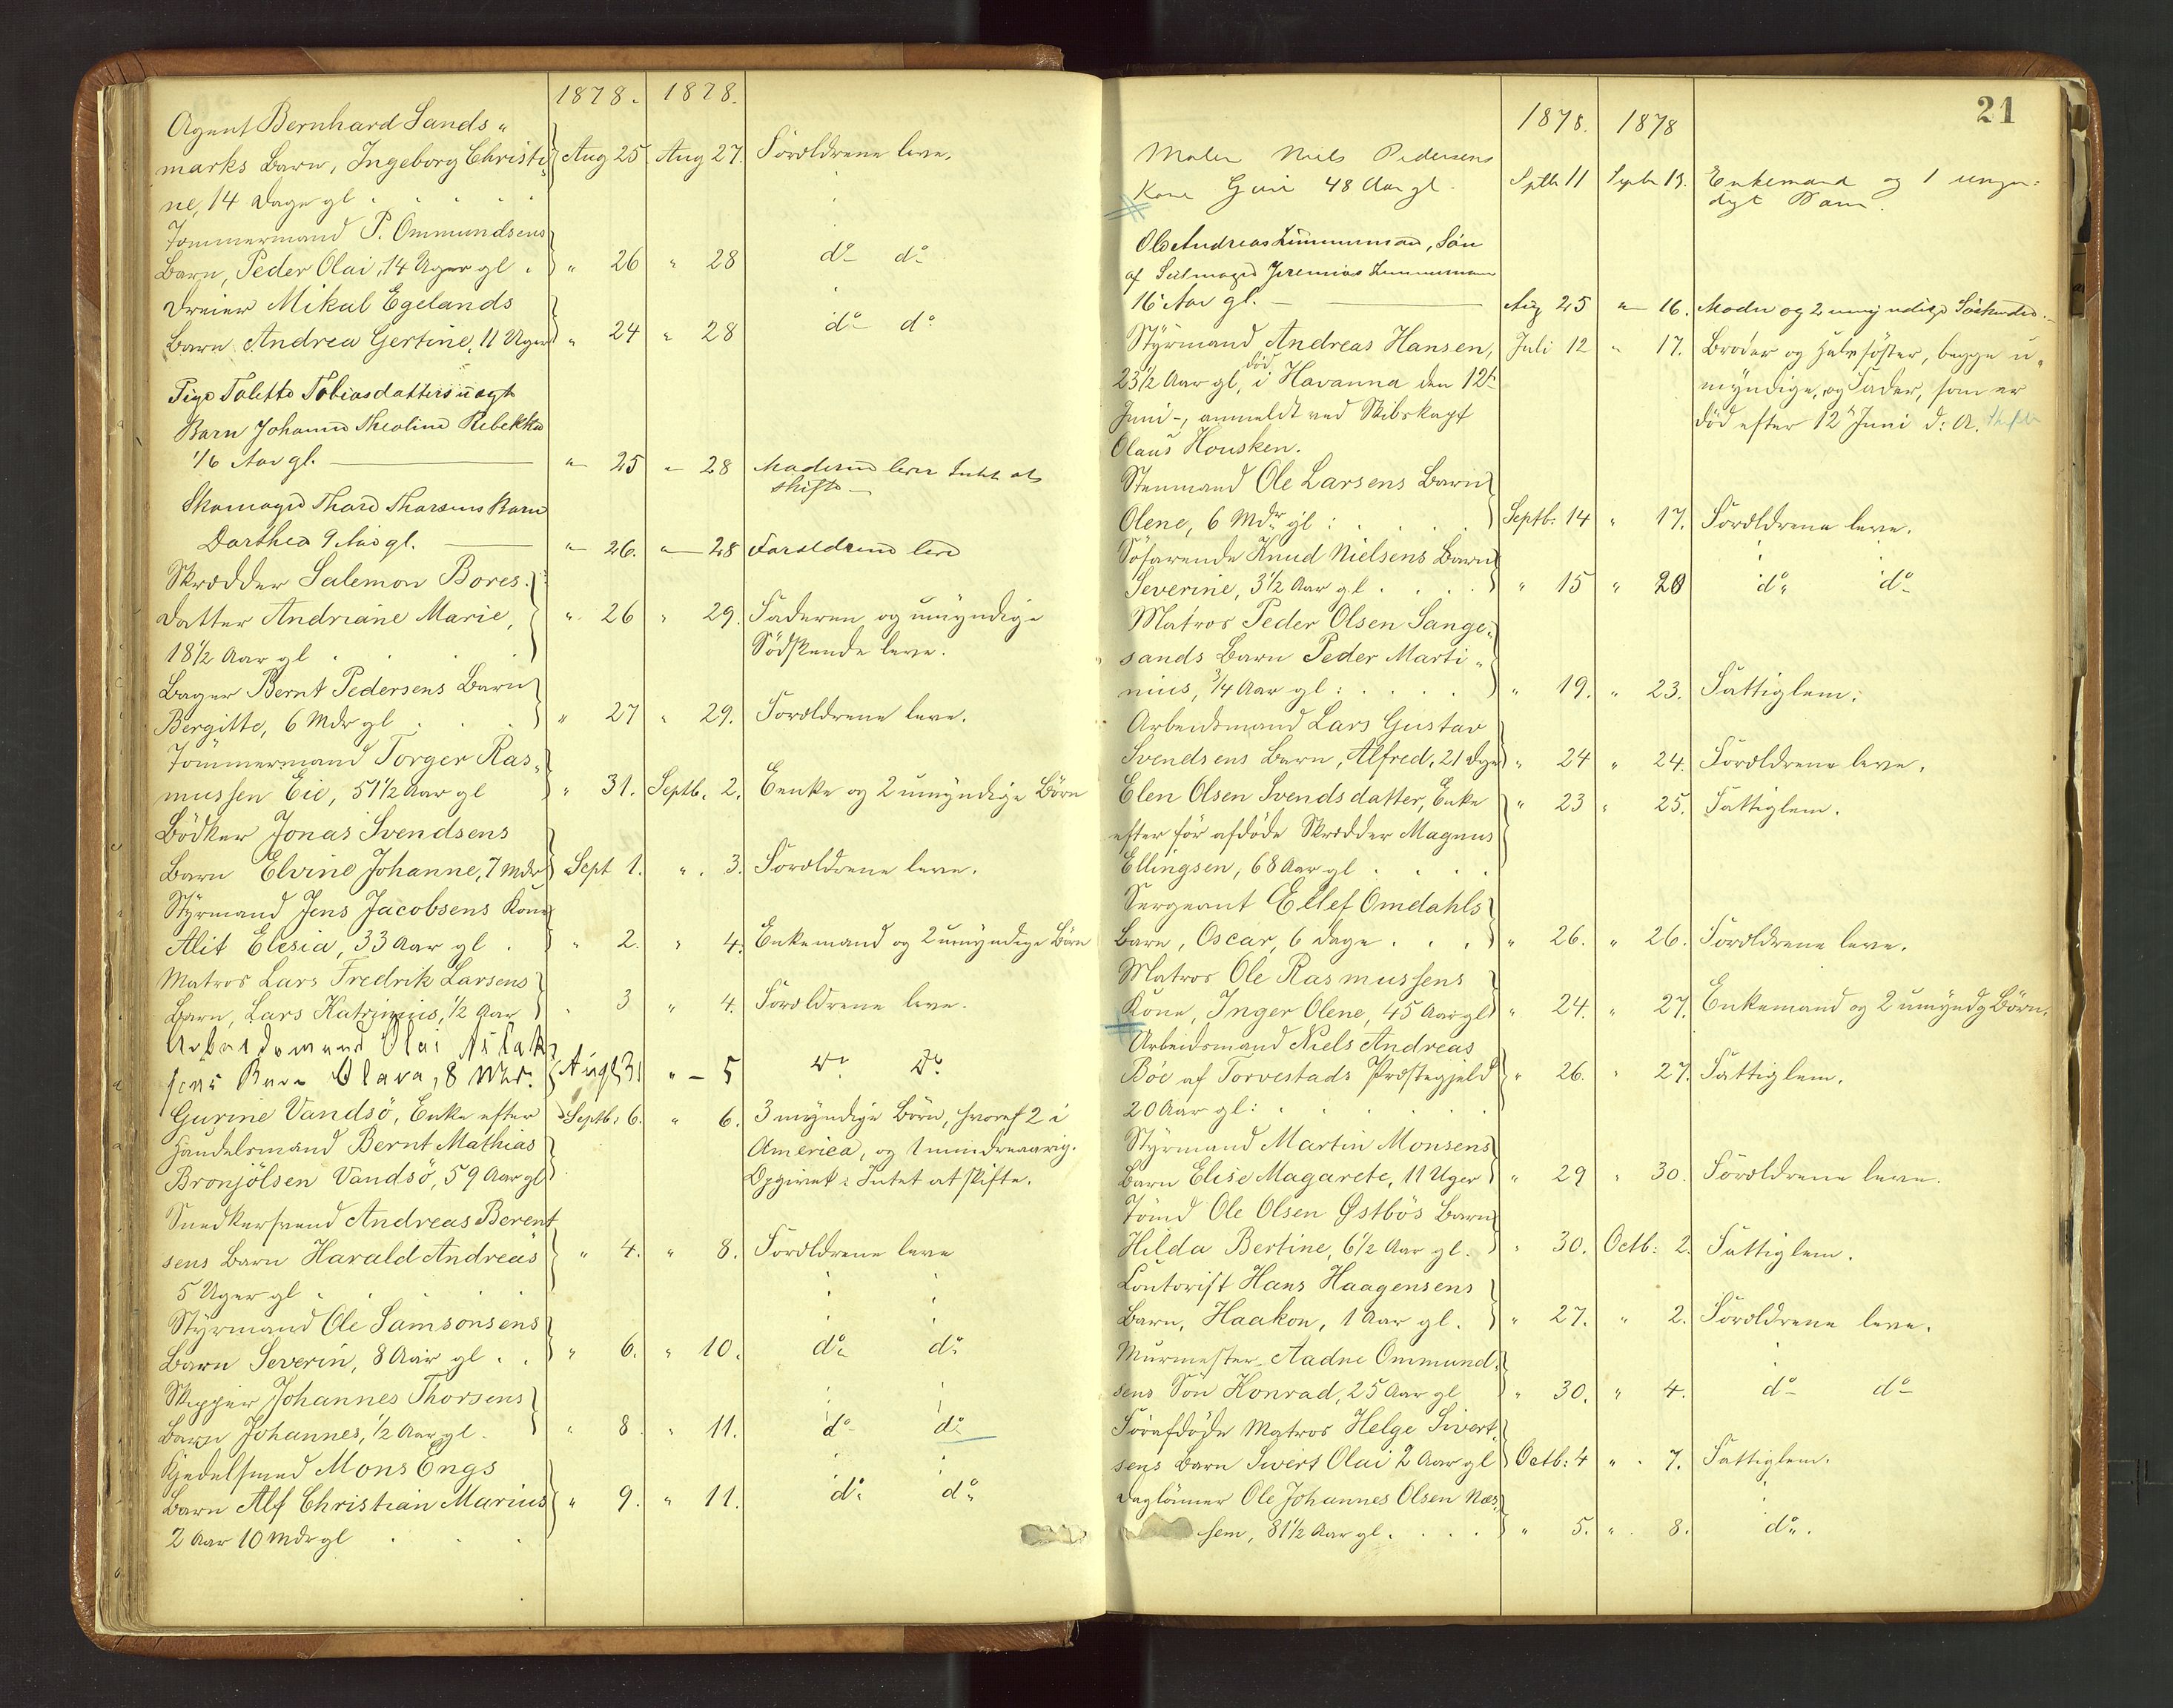 1878. 1878.
Agent Bernhard Sands„
marks Barn, Ingeborg Christi„ Aug 25 Aug 27. Forældrene leve.
ne, 14 Dage gl
Tømmermand P. Ommundsens
Barn, Peder Olai, 14 Uger gl „ 26 „ 28 do do
Dreier Mikal Egelands
Barn Andrea Gertine, 11 Uger „ 24 „ 28 do do
Pige Talette Tobiasdatters uægte
Barn Johanne Thealine Rebekka
1/6 Aar gl. „ 25 „ 28 Moderen lever Intet at
skifte
Skomager Thore Thorsens Barn
Dorthea 9 Aar gl. „ 26. „ 28 Forældrene leve
Skrædder Salemon Bores
Datter Andriane Marie, „ 26 „ 29. Faderen og umyndige
18½ Aar gl Södskende leve.
Bager Bernt Pedersens Barn
Bergitte, 6 Mdr gl „ 27 „ 29. Forældrene leve.
Tömmermand Torger Ras„
mussen Eie, 51½ Aar gl „ 31. Septb. 2. Eenke og 2 umyndige Börn
Bödker Jonas Svendsens
Barn Elvine Johanne, 7 Mdr Sept 1. „ 3. Forældrene leve.
Styrmand Jens Jacobsens Kone
Alit Elesia, 33 Aar gl „ 2. „ 4. Enkemand og 2 umyndige Börn
Matros Lars Fredrik Larsens
Barn, Lars Katrinius, ½ Aar „ 3 „ 4. Forældrene leve.
Arbeidsmand Olai Aslak
sens Barn Olava, 8 Mdr. Aug 31 „ 5 do do
Gurine Vandsö, Enke efter Septb: 6. „ 6. 3 myndige Börn, hvoraf 2 i
Handelsmand Bernt Mathias America, og 1 mindreaarig.
Bronjölsen Vandsö, 59 Aar gl Opgivet: Intet at skifte.
Snedkersvend Andreas Berent
sens Barn Harald Andreas „ 4. „ 8. Forældrene leve
5 Uger gl
Styrmand Ole Samsonsens
Barn Severin, 8 Aar gl „ 6. „ 10. do do
Skipper Johannes Thorsens
Barn Johannes, ½ Aar gl. „ 8 „ 11. do do
Kjedelsmed Mons Engs
Barn Alf Christian Marius „ 9. „ 11. do do
2 Aar 10 Mdr gl
21
1878. 1878
Maler Niels Pedersens
Kone Guri 48 Aar gl. Sptb 11 Septbr 13. Enkemand og 1 umyn:
digt Barn.
Ole Andreas Zimmermann, Sön
af Seilmager Jeremias Zimmermann
16 Aar gl. Aug 25 „ 16. Moder og 2 umyndige Söskende.
Styrmand Andreas Hansen, Juli 12 „ 17. Broder og Halvsöster, begge u„
23½ Aar gl, död i Havanna den 12te myndige, og Fader, som er
Juni, anmeldt ved Skibskapt död efter 12te Juni d: A.
Olaus Housken.
Stenmand Ole Larsens Barn
Olene, 6 Mdr gl: Septb: 14 „ 17. Forældrene leve.
Söfarende Knud Nielsens Barn
Severine, 3½ Aar gl „ 15 „ 20 do do
Matros Peder Olsen Lange„
sands Barn Peder Marti„
nius, ¾ Aar gl: „ 19. „ 23. Fattiglem:
Arbeidsmand Lars Gustav
Svendsens Barn, Alfred, 21 Dge „ 24 „ 24. Forældrene leve.
Elen Olsen Svendsdatter, Enke „ 23 „ 25. Fattiglem.
efter för afdöde Skrædder Magnus
Ellingsen, 68 Aar gl
Sergeant Ellef Omdahls
Barn, Oscar, 6 Dage „ 26. „ 26. Forældrene leve.
Matros Ole Rasmussens
Kone, Inger Olene, 45 Aar gl „ 24. „ 27. Enkemand og 2 umyndg Börn.
Arbeidsmand Niels Andreas
Böe af Torvestads Præstegjeld „ 26. „ 27. Fattiglem.
20 Aar gl:
Styrmand Martin Monsens
Barn Elise Magarete, 11 Uger „ 29 „ 30. Forældrene leve.
Tömd Ole Olsen Østbös Barn
Hilda Bertine, 6½ Aar gl. „ 30. Octb: 2. Fattiglem.
Contorist Hans Haagensens
Barn, Haakon, 1 Aar gl. „ 27. „ 2. Forældrene leve.
Murmester Aadne Ommund„
sens Sön Konrad, 25 Aar gl „ 30. „ 4. do do
Förafdöde Matros Helge Sivert„
sens Barn Sivert Olai 2 Aar gl Octb: 4 „ 7. Fattiglem.
Daglönner Ole Johannes Olsen Næs„
sem, 81½ Aar gl. „ 5. „ 8. do.